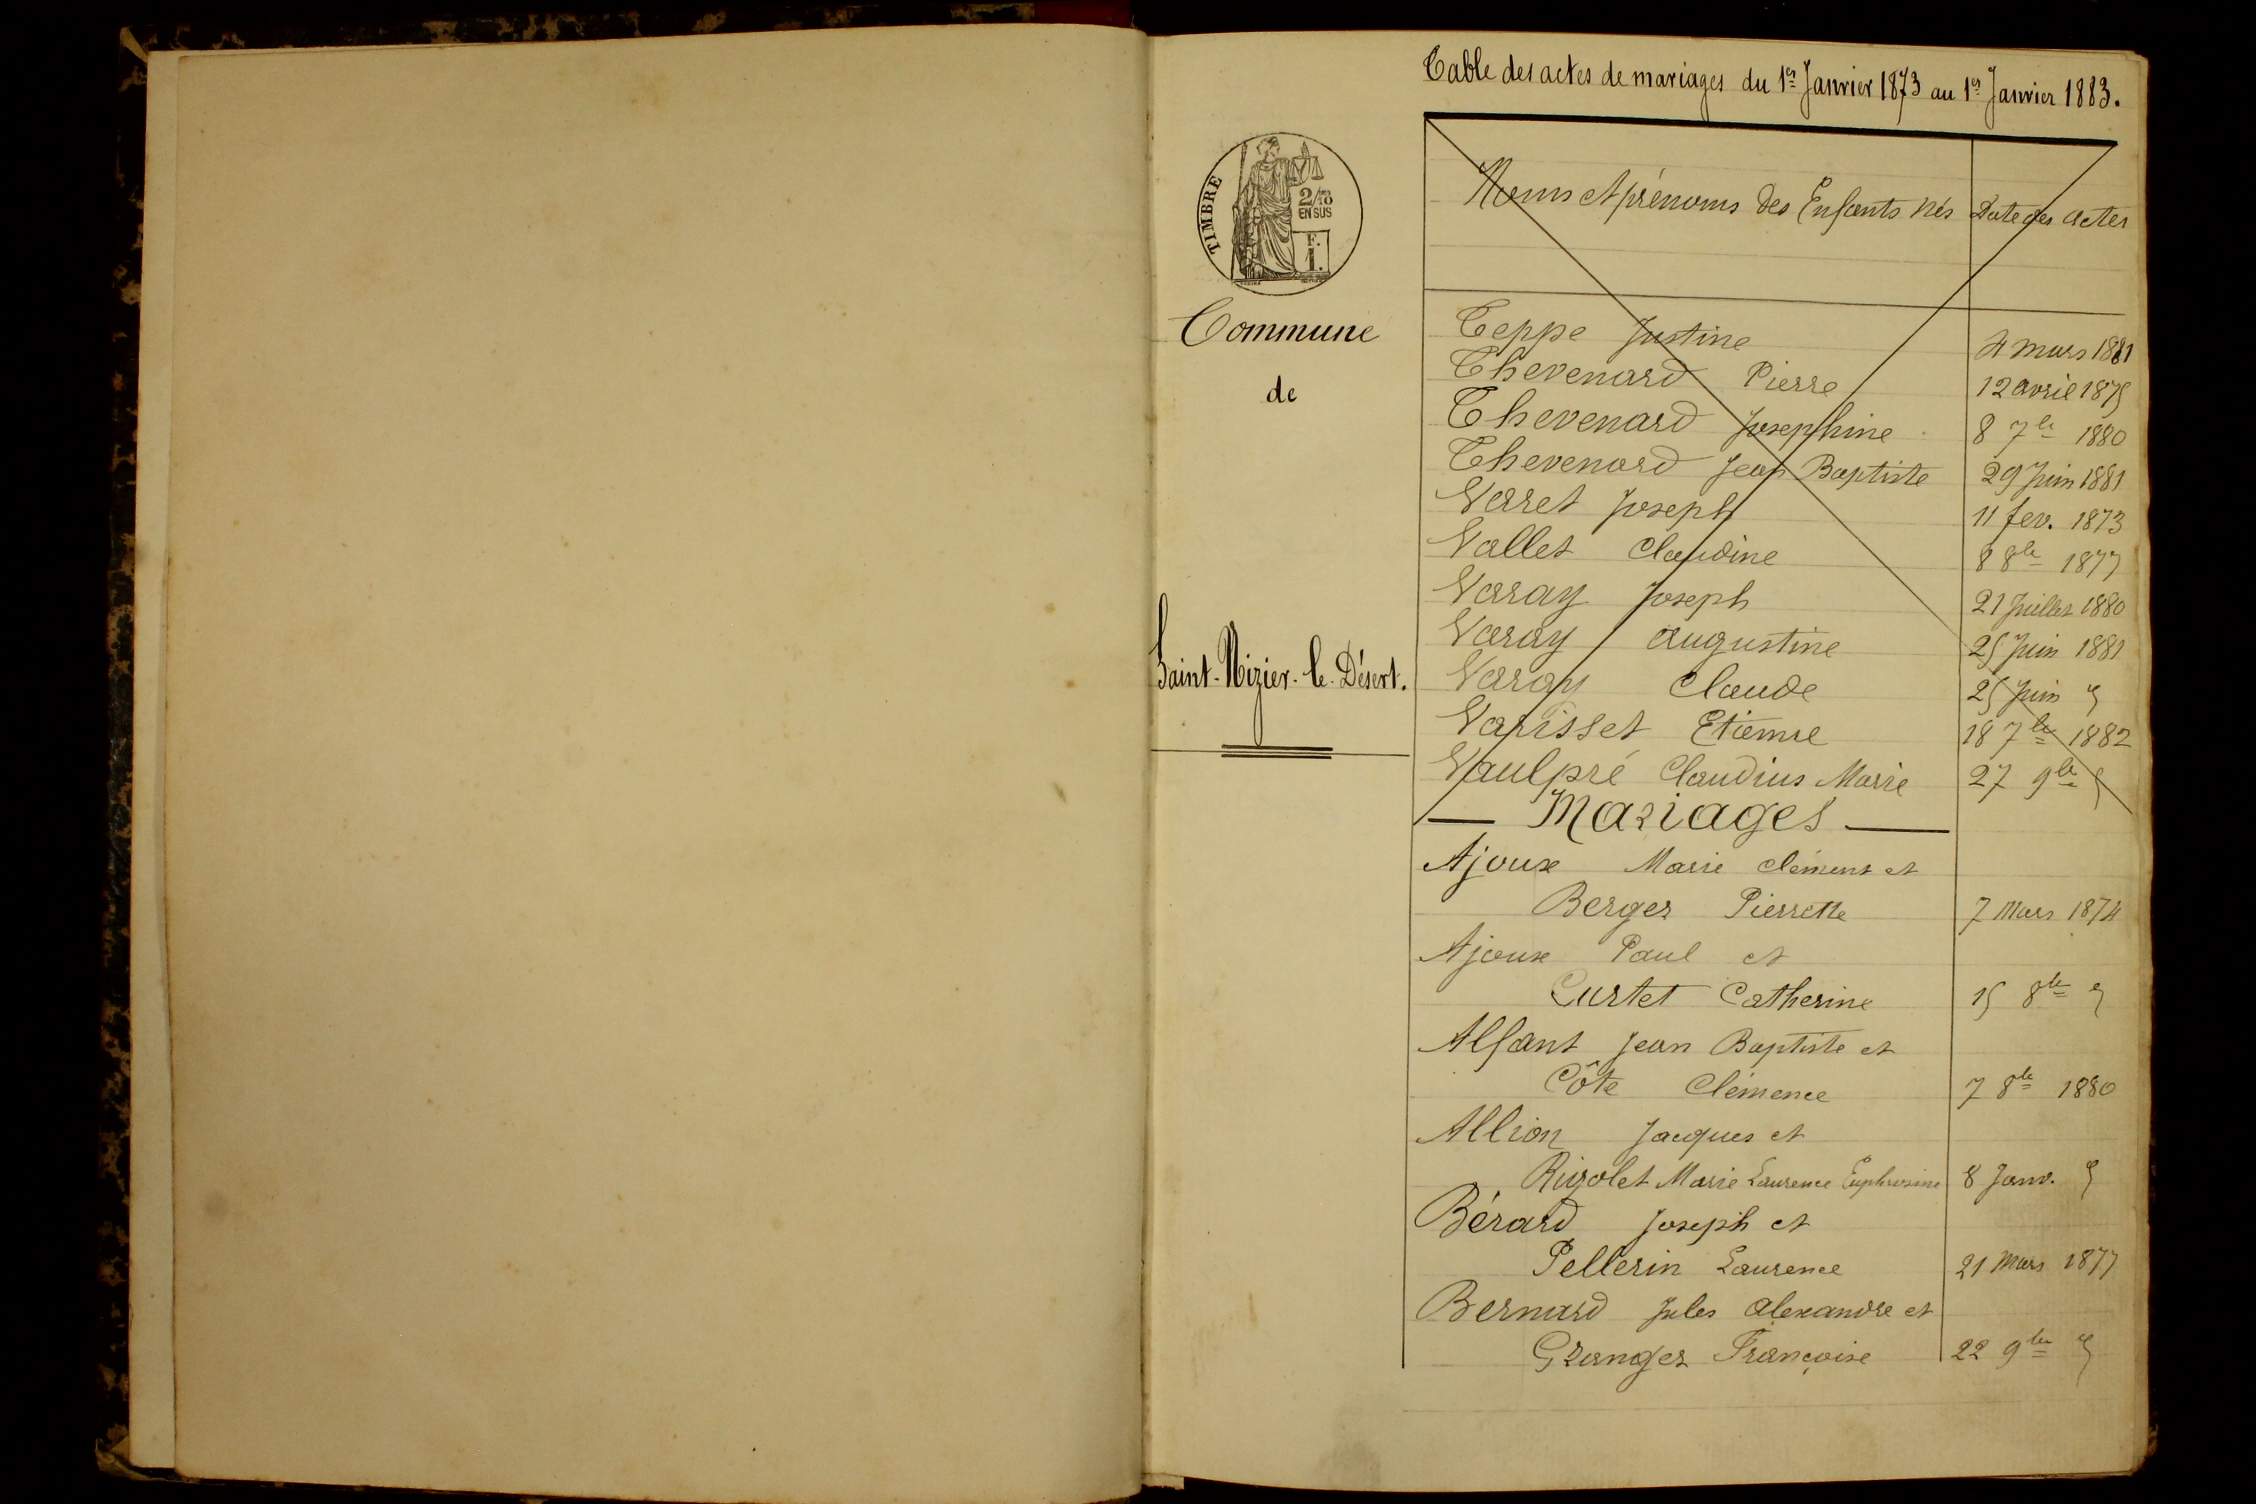 Table des actes de mariages du 1er Janvier 1873 au 1er Janvier 1883.
TIMBRE
2/10 EN SUS
F. 1.
Commune
de
Saint-Nizier-le-Désert.
Noms et prénoms des Enfants nés Date des actes
Teppe Justine 4 mars 1881
Thevenard Pierre 12 avril 1875
Thevenard Josephine 8 7bre 1880
Thevenard Jean Baptiste 29 Juin 1881
Varret Joseph 11 fev. 1873
Vallet Claudine 8 8bre 1877
Varay Joseph 21 Juillet 1880
Varay Augustine 25 Juin 1881
Varay Claude 25 Juin "
Varisset Etienne 18 7bre 1882
Vaulpré Claudius Marie 27 9bre "
— Mariages —
Ajoux Marie Clément et
Berger Pierrette 7 Mars 1874
Ajoux Paul et
Curtet Catherine 15 8bre "
Alfant Jean Baptiste et
Côte Clémence 7 8bre 1880
Allion Jacques et
Rigolet Marie Laurence Euphrosine 8 Janv. "
Bérard Joseph et
Pellerin Laurence 21 Mars 1877
Bernard Jules Alexandre et
Granger Françoise 22 9bre "